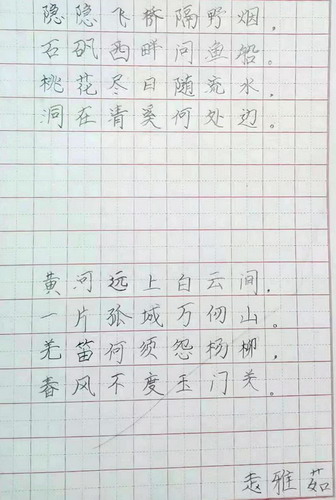 隐隐飞桥隔野烟，
石矶西畔问鱼船。
桃花尽日随流水，
洞在青溪何处边。
黄河远上白云间，
一片孤城万仞山。
羌笛何须怨杨柳，
春风不度玉门关。
雅茹